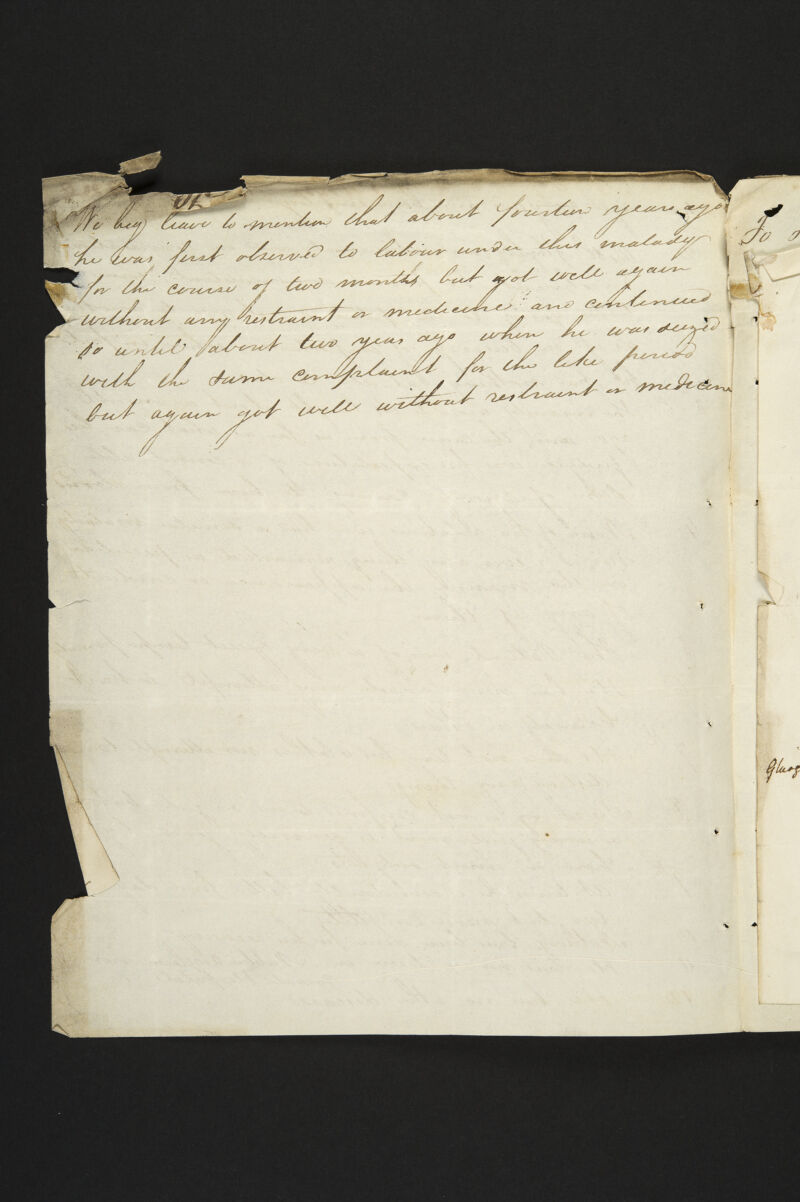 We beg leave to mention that about fourteen years ago
he was first observed to labour under this malady
for the course of two months but got well again
without any restraint or medicine and continued
so until about two years ago when he was seized
with the same complaint for the like period
but again got well without restraint or medicine
To
Glasg